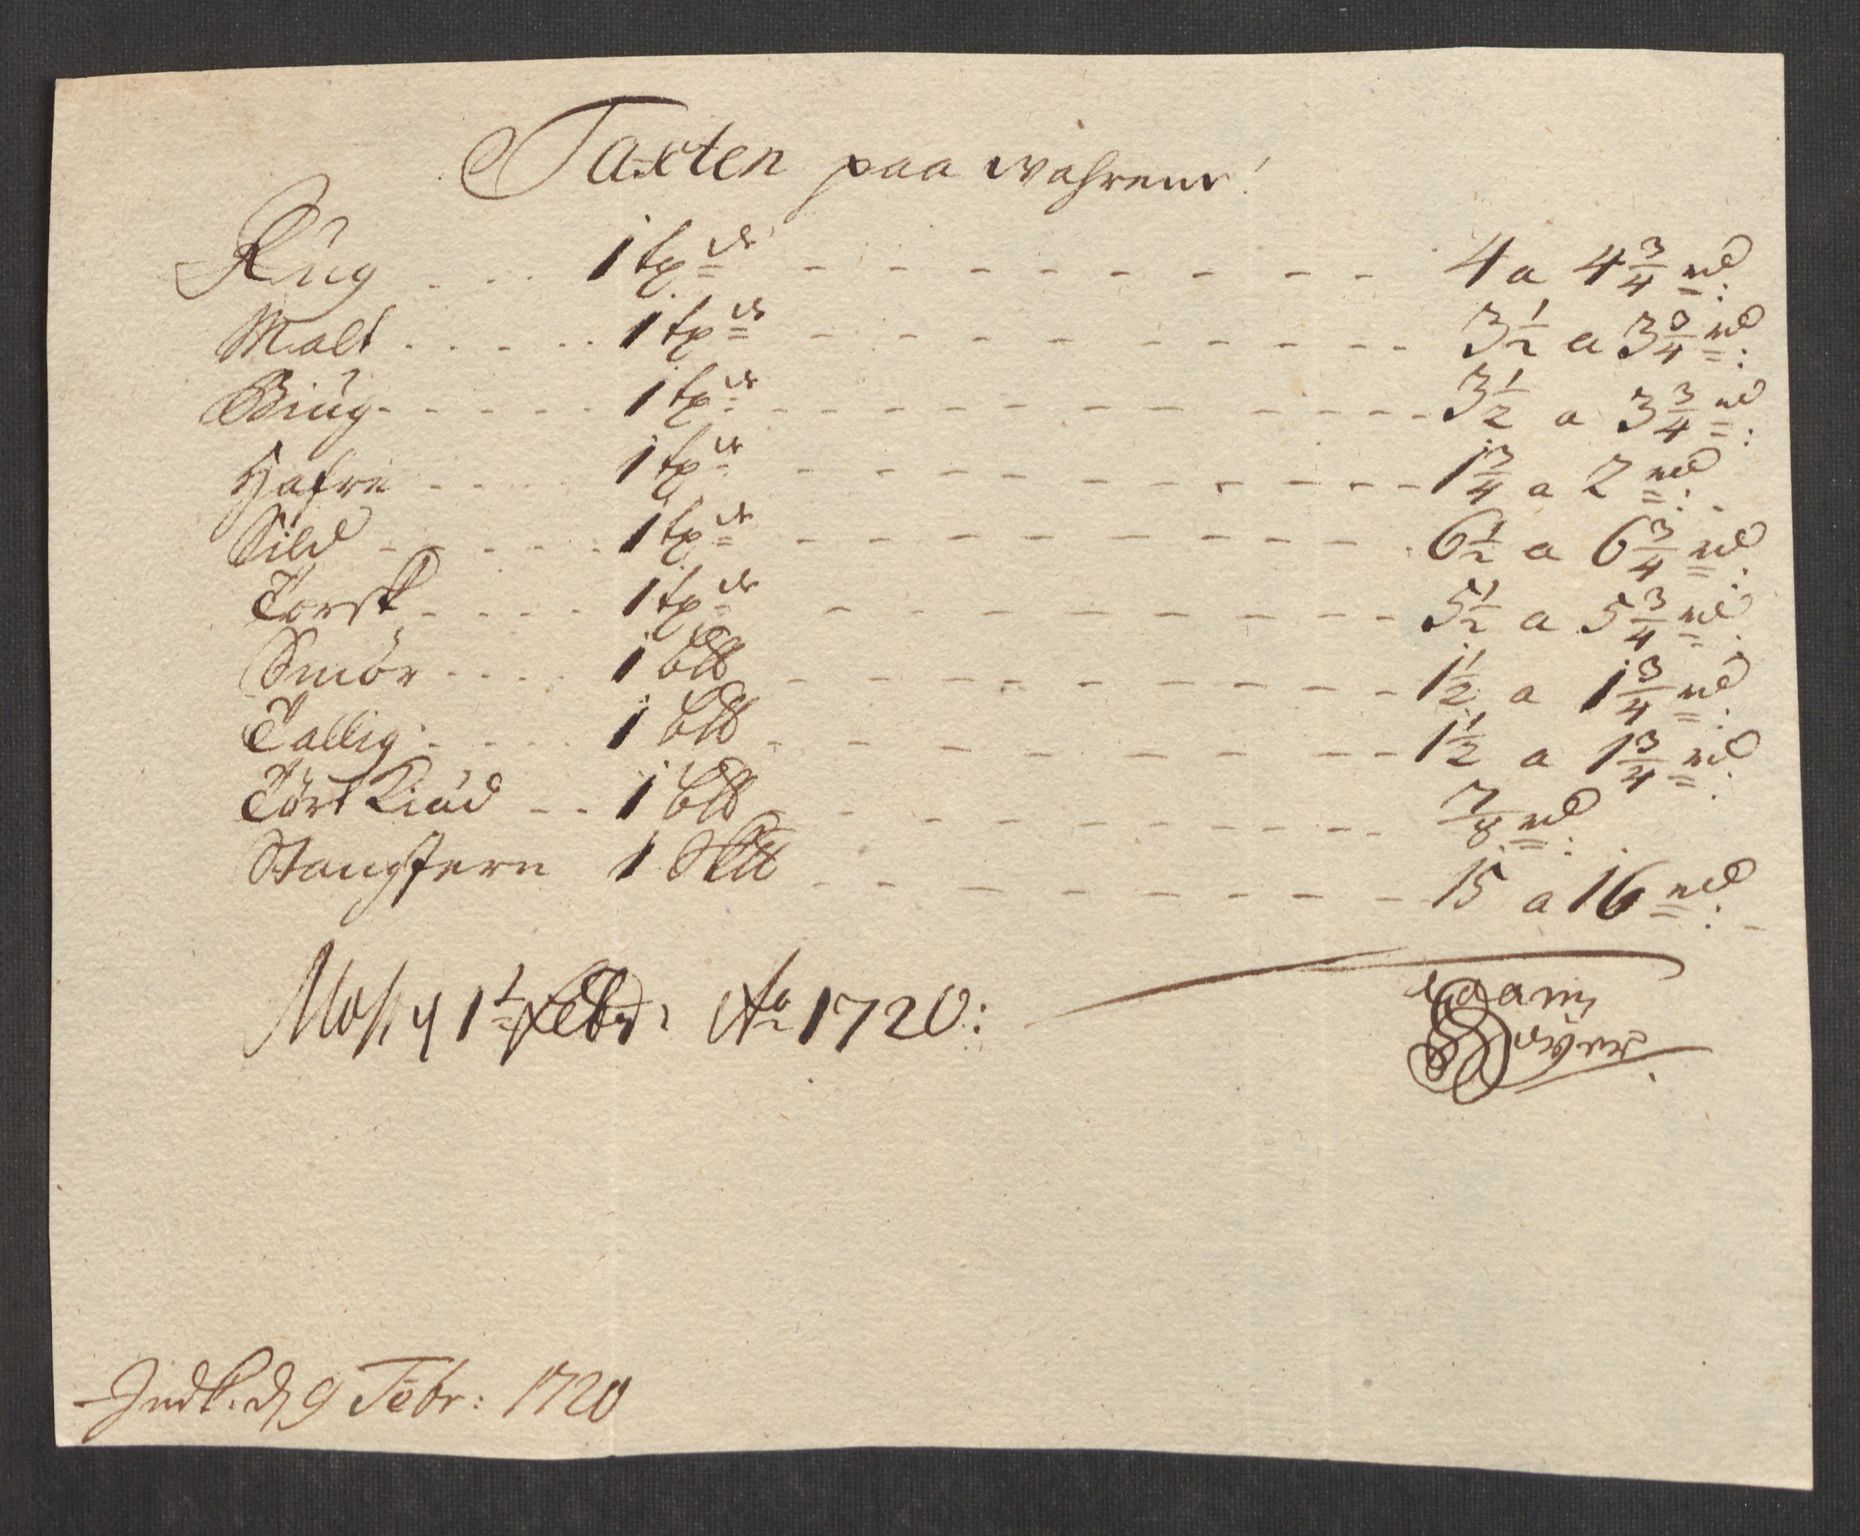 Taxten paa wahrene
Rúg . . . 1 tønde - - - 4 a 4 3/4 rd:
Malt . . . . . 1 tønde - - - 3 1/2 a 3 3/4 rd:
Biúg - - - - - 1 tønde - - - 3 1/2 a 3 3/4 rd:
Hafre - - - - 1 tønde - - - 1 3/4 a 2 rd:
Sild - - - - - 1 tønde - - - 6 1/2 a 6 3/4 rd:
Torsk - - - - 1 tønde - - - 5 1/2 a 5 3/4 rd:
Smör - - - - 1 b℔ - - - 1 1/2 a 1 3/4 rd:
Tallig - - - - 1 b℔ - - - 1 1/2 a 1 3/4 rd:
Tört Kiöd - - 1 b℔ - - - 7/8 rd:
Stangjern 1 Sk℔ - - - 15 a 16 rd:
Moss d 1t Febr: Ao 1720:
Indk. d 9 Febr: 1720